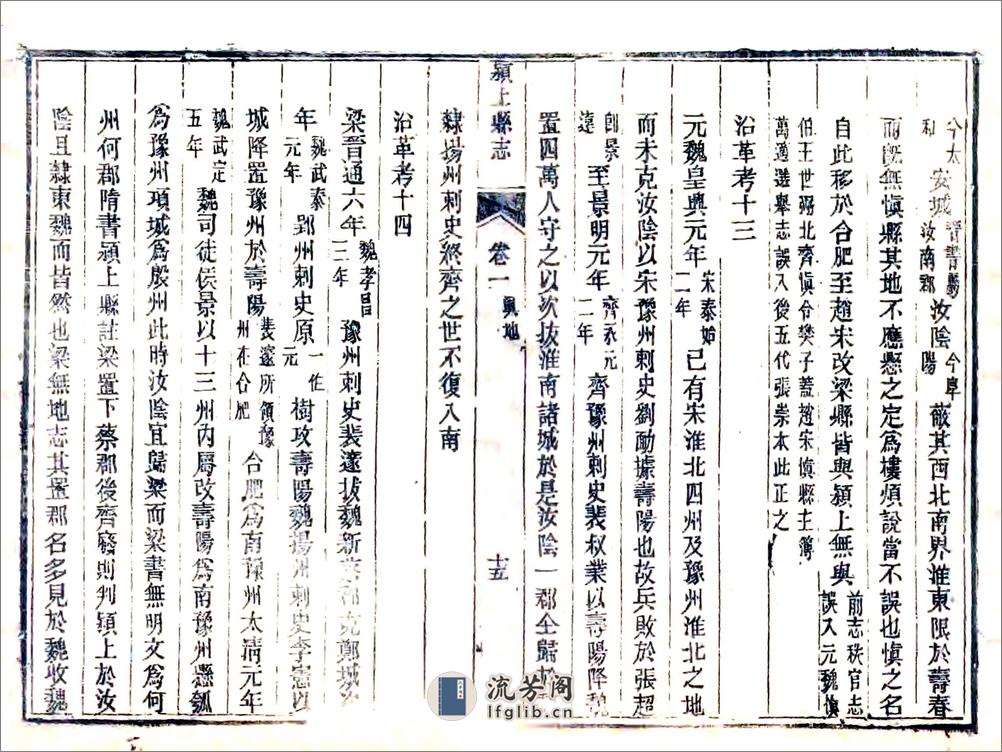 今太和安城晉書屬汝南郡汝陰今阜陽蔽其西北南界淮東限於壽春
而既無慎縣其地不應懸之定為樓煩說當不誤也慎之名
自此移於合肥至趙宋改梁縣皆與潁上無與前志秩官志誤入元魏慎
伯王世弼北齊慎令樊子蓋趙宋慎縣主簿萬適選舉志誤入後五代張崇本此正之
沿革考十三
元魏皇興元年宋泰始二年已有宋淮北四州及豫州淮北之地
而未克汝陰以宋豫州刺史劉勔據壽陽也故兵敗於張超
卽景遠至景明元年齊永元二年齊豫州刺史裴叔業以壽陽降魏
置四萬人守之以次拔淮南諸城於是汝陰一郡全歸
隸揚州刺史終齊之世不復入南
潁上縣志
卷一 輿地
十五
沿革考十四
梁晉通六年魏孝昌三年豫州刺史裴邃拔魏新蔡郡克鄭城
年魏武泰元年郢州刺史原一作元樹攻壽陽魏揚州刺史李憲以
城降置豫州於壽陽裴邃所領豫州在合肥合肥為南豫州太清元年
魏武定五年魏司徒侯景以十三州內屬改壽陽為南豫州懸瓠
為豫州項城為殷州此時汝陰宜歸梁而梁書無明文為何
州何郡隋書潁上縣註梁置下蔡郡後齊廢則判潁上於汝
陰且隸東魏而皆然也梁無地志其置郡名多見於魏收魏
流芳阁
lfglib.cn